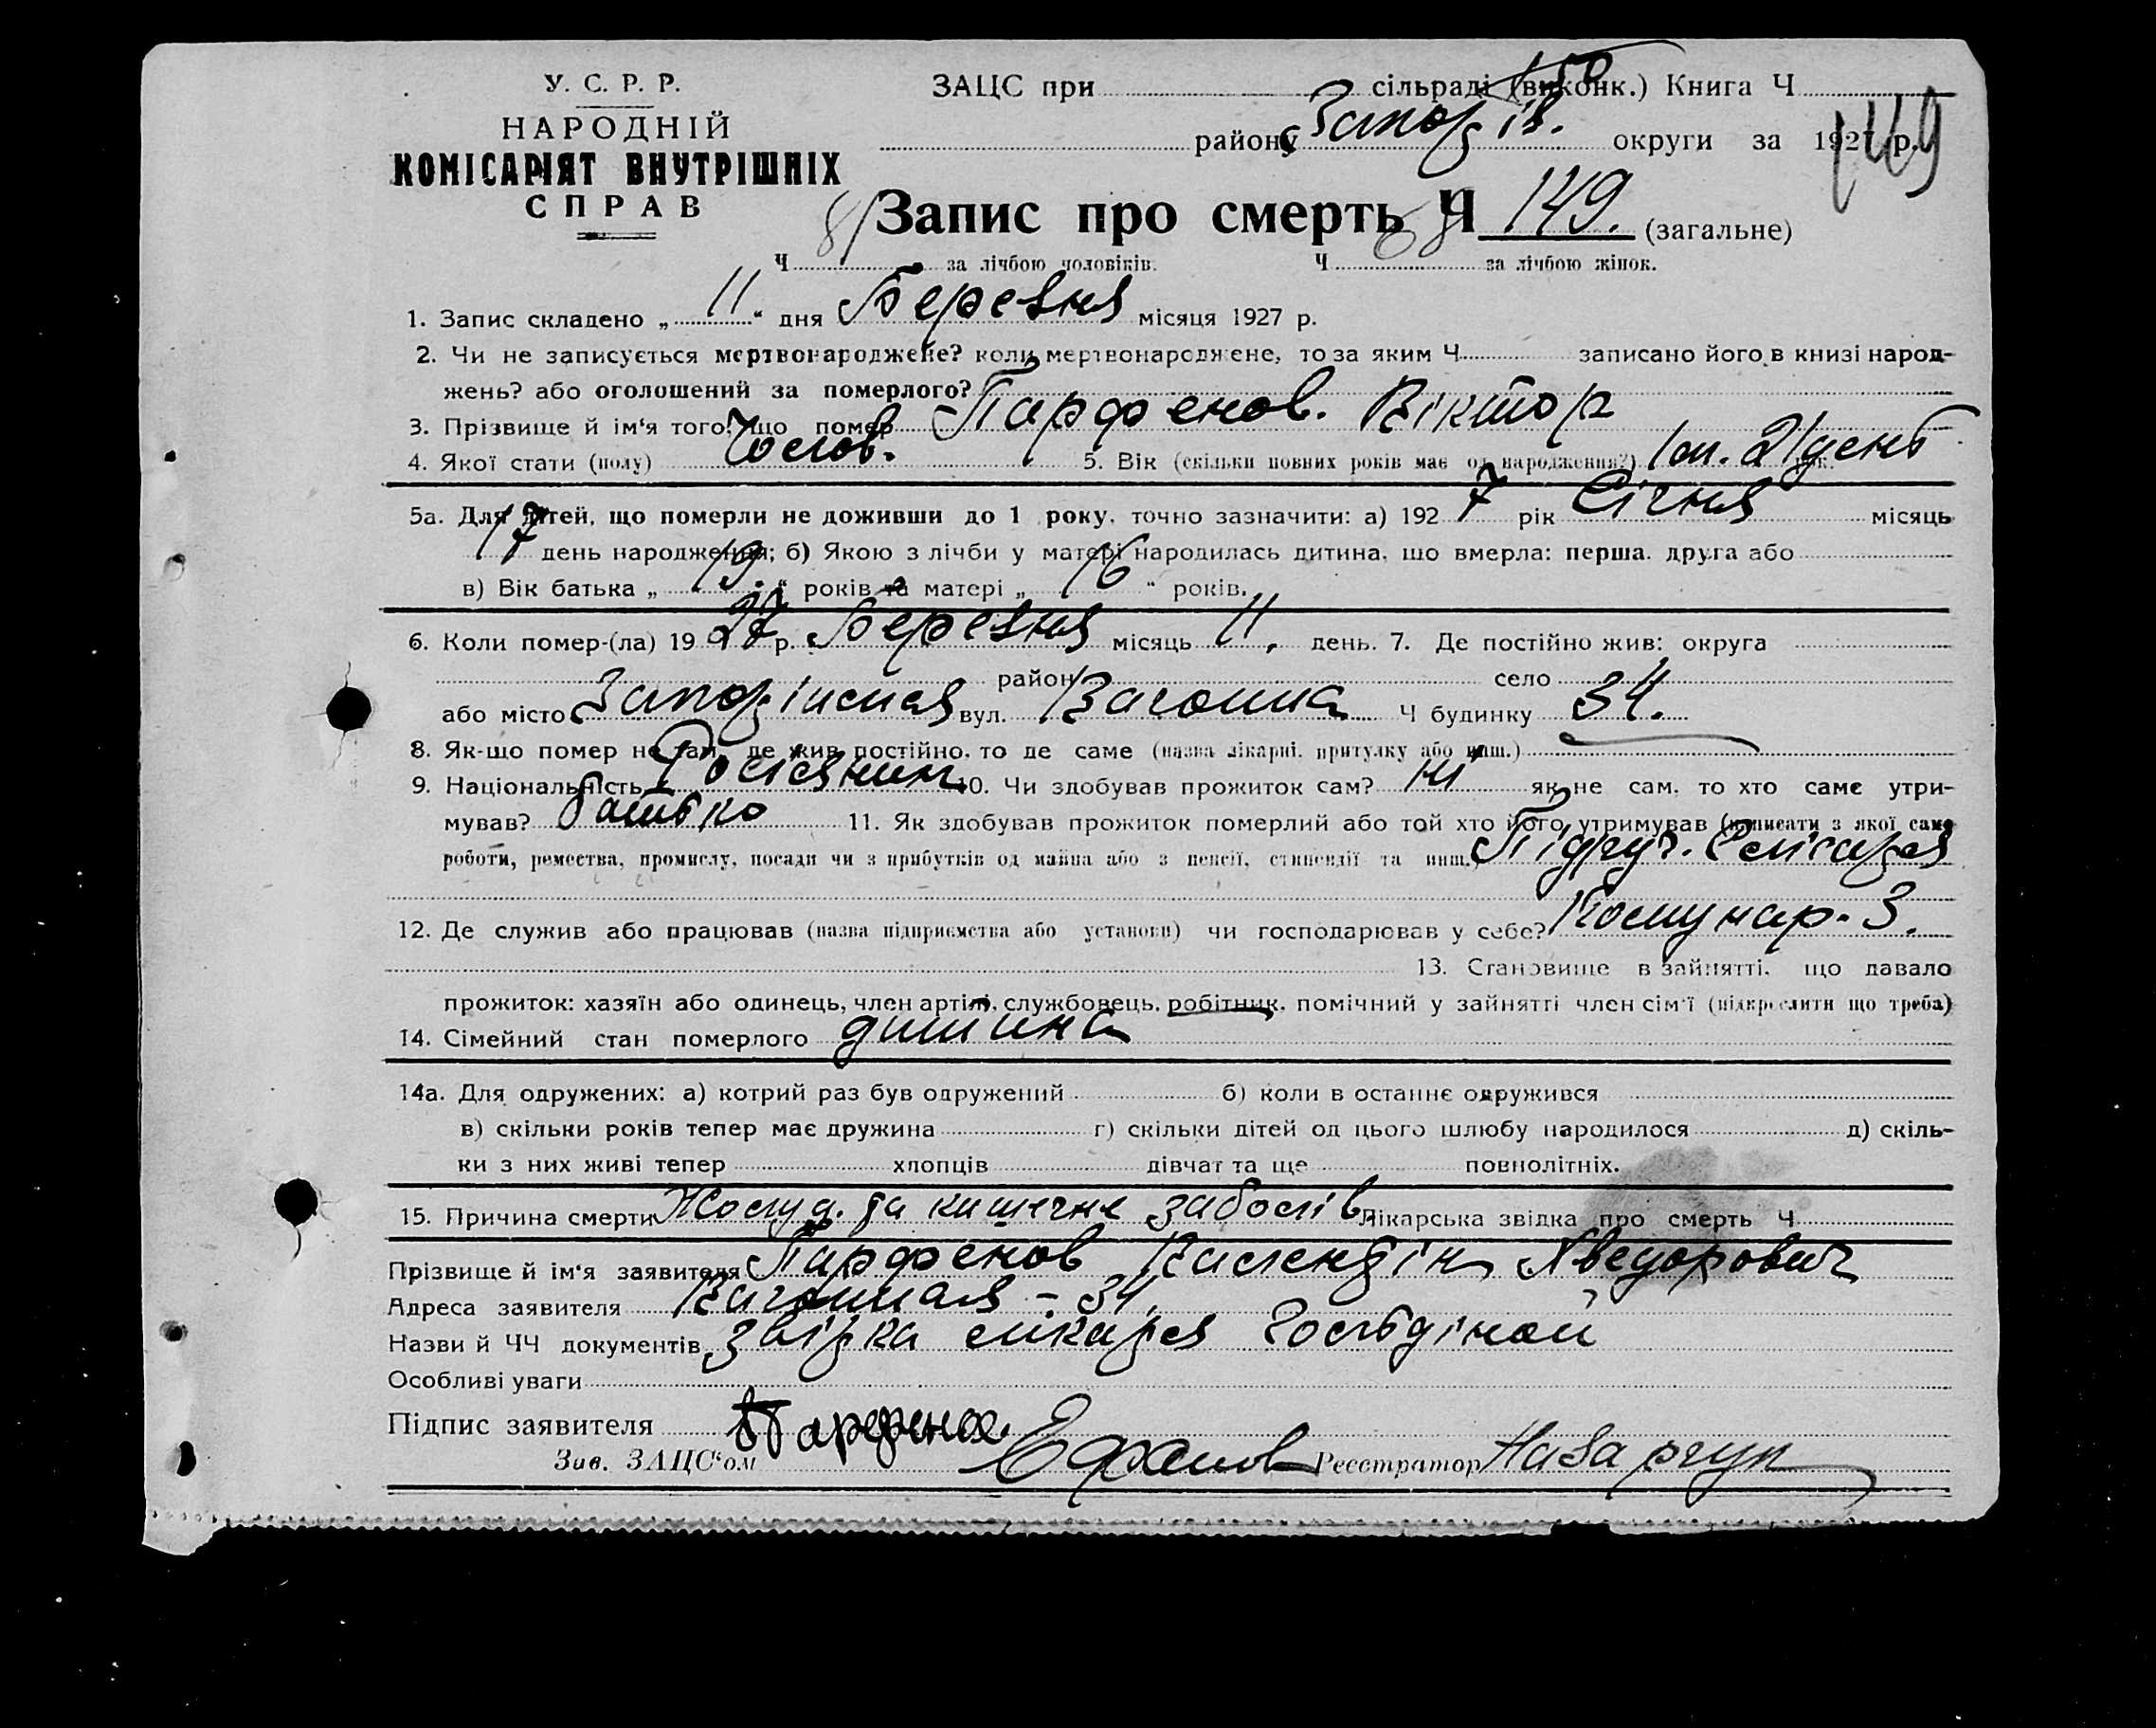 У. С. Р. Р.
НАРОДНІЙ
КОМІСАРІЯТ ВНУТРІШНІХ
СПРАВ
ЗАЦС при сільраді (виконк.) Книга Ч
району Запоріз. округи за 1927 р.
149
Запис про смерть Ч 149. (загальне)
Ч 81 за лічбою чоловіків. Ч 68 за лічбою жінок.
1. Запис складено „ 11 “ дня Березня місяця 1927 р.
2. Чи не записується мертвонароджене? коли мертвонароджене, то за яким Ч записано його в книзі народ-
жень? або оголошений за померлого?
3. Прізвище й ім‘я того, що помер Парфенов. Віктор
4. Якої стати (полу) Чолов. 5. Вік (скільки повних років має од народження?) 1 м. 21 день
5а. Для дітей, що померли не доживши до 1 року, точно зазначити: а) 192 7 рік Січня місяць
17 день народження; б) Якою з лічби у матері народилась дитина, що вмерла: перша, друга або
в) Вік батька „ 19 “ років та матері „ 16 “ років.
6. Коли помер-(ла) 19 27 р. Березня місяць 11. день. 7. Де постійно жив: округа
район село
або місто вул. Вагонна Ч будинку 34.
8. Як-що помер не там, де жив постійно, то де саме (назва лікарні, притулку або инш.)
9. Національність Росіянин 10. Чи здобував прожиток сам? ні як не сам, то хто саме утри-
мував? батько 11. Як здобував прожиток померлий або той хто його утримував (написати з якої саме
роботи, ремества, промислу, посади чи з прибутків од майна або з пенсії, стипендії та инш.) Підруч. Слісаря
12. Де служив або працював (назва підприємства або установи) чи господарював у себе? Комунар-З.
13. Становище в зайнятті, що давало
прожиток: хазяїн або одинець, член артілі, службовець, робітник, помічний у зайнятті член сім‘ї (підкреслити що треба)
14. Сімейний стан померлого дитина
14а. Для одружених: а) котрий раз був одружений б) коли в останнє одружився
в) скільки років тепер має дружина г) скільки дітей од цього шлюбу народилося д) скіль-
ки з них живі тепер хлопців дівчат та ще повнолітніх.
15. Причина смерти Жолуд. та кишечне заболів Лікарська звідка про смерть Ч
Прізвище й ім‘я заявителя Парфенов Валентін Хведорович
Адреса заявителя Вагонная – 34.
Назви й ЧЧ документів звідка лікаря Гольдіной
Особливі уваги
Підпис заявителя Парфенов
Зав. ЗАЦС‘ом Реєстратор Назарчук